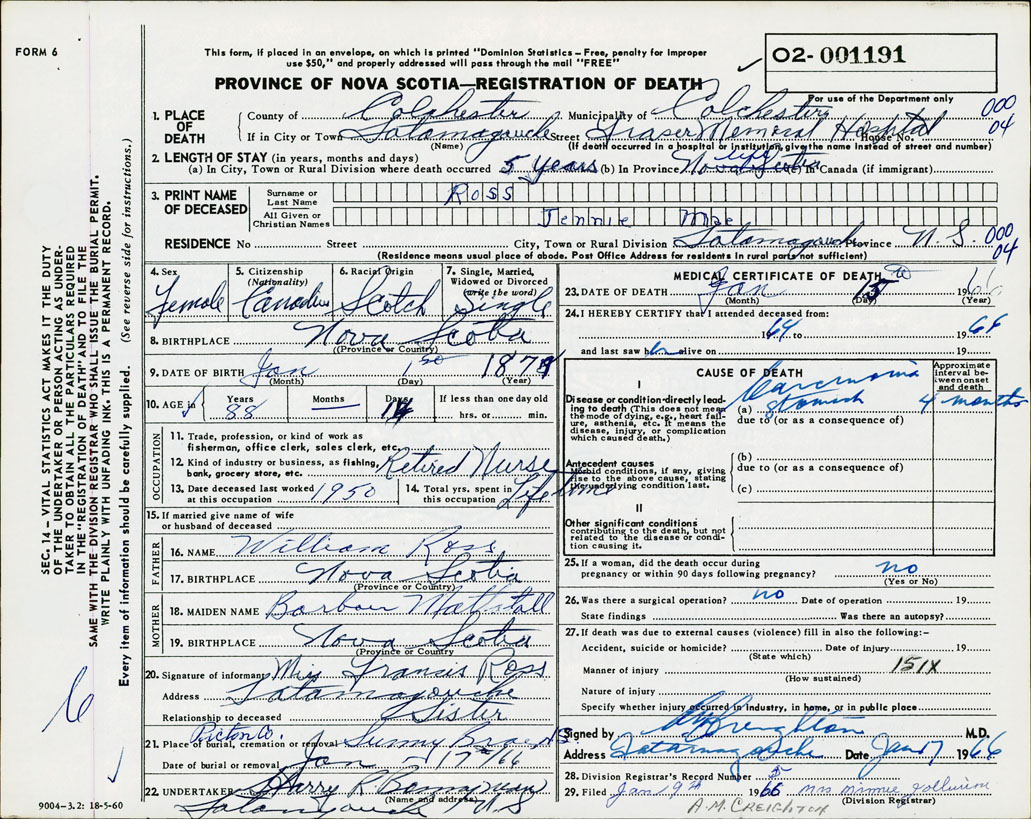 FORM 6
This form, if placed in an envelope, on which is printed "Dominion Statistics – Free, penalty for improper
use $50," and properly addressed will pass through the mail "FREE"
O2- 001191
PROVINCE OF NOVA SCOTIA—REGISTRATION OF DEATH
For use of the Department only
1. PLACE OF DEATH
County of Colchester Municipality of Colchester 000
If in City or Town Tatamagouche Street Fraser Memorial Hospital House No. 04
(Name) (If death occurred in a hospital or institution, give the name instead of street and number)
2. LENGTH OF STAY (in years, months and days)
(a) In City, Town or Rural Division where death occurred 5 years (b) In Province Nova Scotia life (c) In Canada (if immigrant)
3. PRINT NAME OF DECEASED
Surname or Last Name ROSS
All Given or Christian Names Jennie Mae
RESIDENCE No Street City, Town or Rural Division Tatamagouche Province N.S. 000 04
(Residence means usual place of abode. Post Office Address for residents in rural parts not sufficient)
4. Sex Female
5. Citizenship (Nationality) Canadian
6. Racial Origin Scotch
7. Single, Married, Widowed or Divorced (write the word) Single
8. BIRTHPLACE Nova Scotia
(Province or Country)
9. DATE OF BIRTH Jan 1st
(Month) (Day) (Year)
10. AGE in Years 88 Months — Days 14 If less than one day old
hrs. or min.
OCCUPATION
11. Trade, profession, or kind of work as fisherman, office clerk, sales clerk, etc.
12. Kind of industry or business, as fishing, bank, grocery store, etc. Retired Nurse
13. Date deceased last worked at this occupation 1950
14. Total yrs. spent in this occupation Lifetime
15. If married give name of wife or husband of deceased
FATHER
16. NAME William Ross
17. BIRTHPLACE Nova Scotia
(Province or Country)
MOTHER
18. MAIDEN NAME Mattatall
19. BIRTHPLACE Nova Scotia
(Province or Country
20. Signature of informant Miss Francis Ross
Address Tatamagouche
Relationship to deceased Sister
Pictou Co.
21. Place of burial, cremation or removal Sunny
Date of burial or removal Jan 17/66
22 UNDERTAKER Harry R.
(Name and address)
Tatamagouche N S
MEDICAL CERTIFICATE OF DEATH
23. DATE OF DEATH Jan 15 1966
(Month) (Day) (Year)
24. I HEREBY CERTIFY that I attended deceased from:
1964 to 1966
and last saw him alive on 19
CAUSE OF DEATH
Approximate interval between onset and death
I
Disease or condition directly leading to death (This does not mean the mode of dying, e.g., heart failure, asthenia, etc. It means the disease, injury, or complication which caused death.)
(a) Carcinoma stomach 4 months
due to (or as a consequence of)
Antecedent causes
Morbid conditions, if any, giving rise to the above cause, stating the underlying condition last.
(b)
due to (or as a consequence of)
(c)
II
Other significant conditions
contributing to the death, but not related to the disease or condition causing it.
25. If a woman, did the death occur during pregnancy or within 90 days following pregnancy? no
(Yes or No)
26. Was there a surgical operation? no Date of operation 19
State findings Was there an autopsy?
27. If death was due to external causes (violence) fill in also the following:–
Accident, suicide or homicide? Date of injury 19
(State which)
Manner of injury 151X
(How sustained)
Nature of injury
Specify whether injury occurred in industry, in home, or in public place
Signed by AM Creighton M.D.
Address Tatamagouche Date Jan 17 1966
28. Division Registrar's Record Number 5
29. Filed Jan 19th 1966 Mrs Minnie
(Division Registrar)
A.M. CREIGHTON
SEC. 14 – VITAL STATISTICS ACT MAKES IT THE DUTY
OF THE UNDERTAKER OR PERSON ACTING AS UNDER-
TAKER TO OBTAIN ALL THE PARTICULARS REQUIRED
IN THE "REGISTRATION OF DEATH" AND TO FILE THE
SAME WITH THE DIVISION REGISTRAR WHO SHALL ISSUE THE BURIAL PERMIT.
WRITE PLAINLY WITH UNFADING INK. THIS IS A PERMANENT RECORD.
Every item of information should be carefully supplied. (See reverse side for instructions.)
9004–3.2: 18-5-60